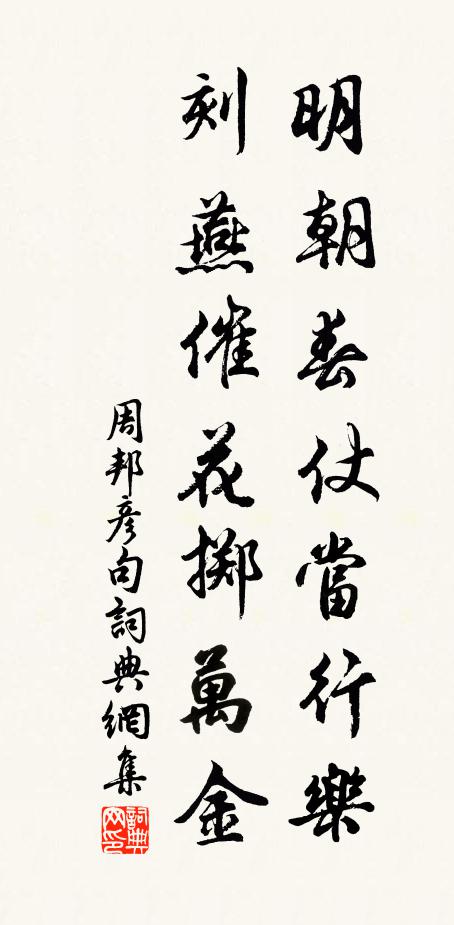 明朝春仗當行樂
刻燕催花擲萬金
周邦彥句詞典網集
詞典網印